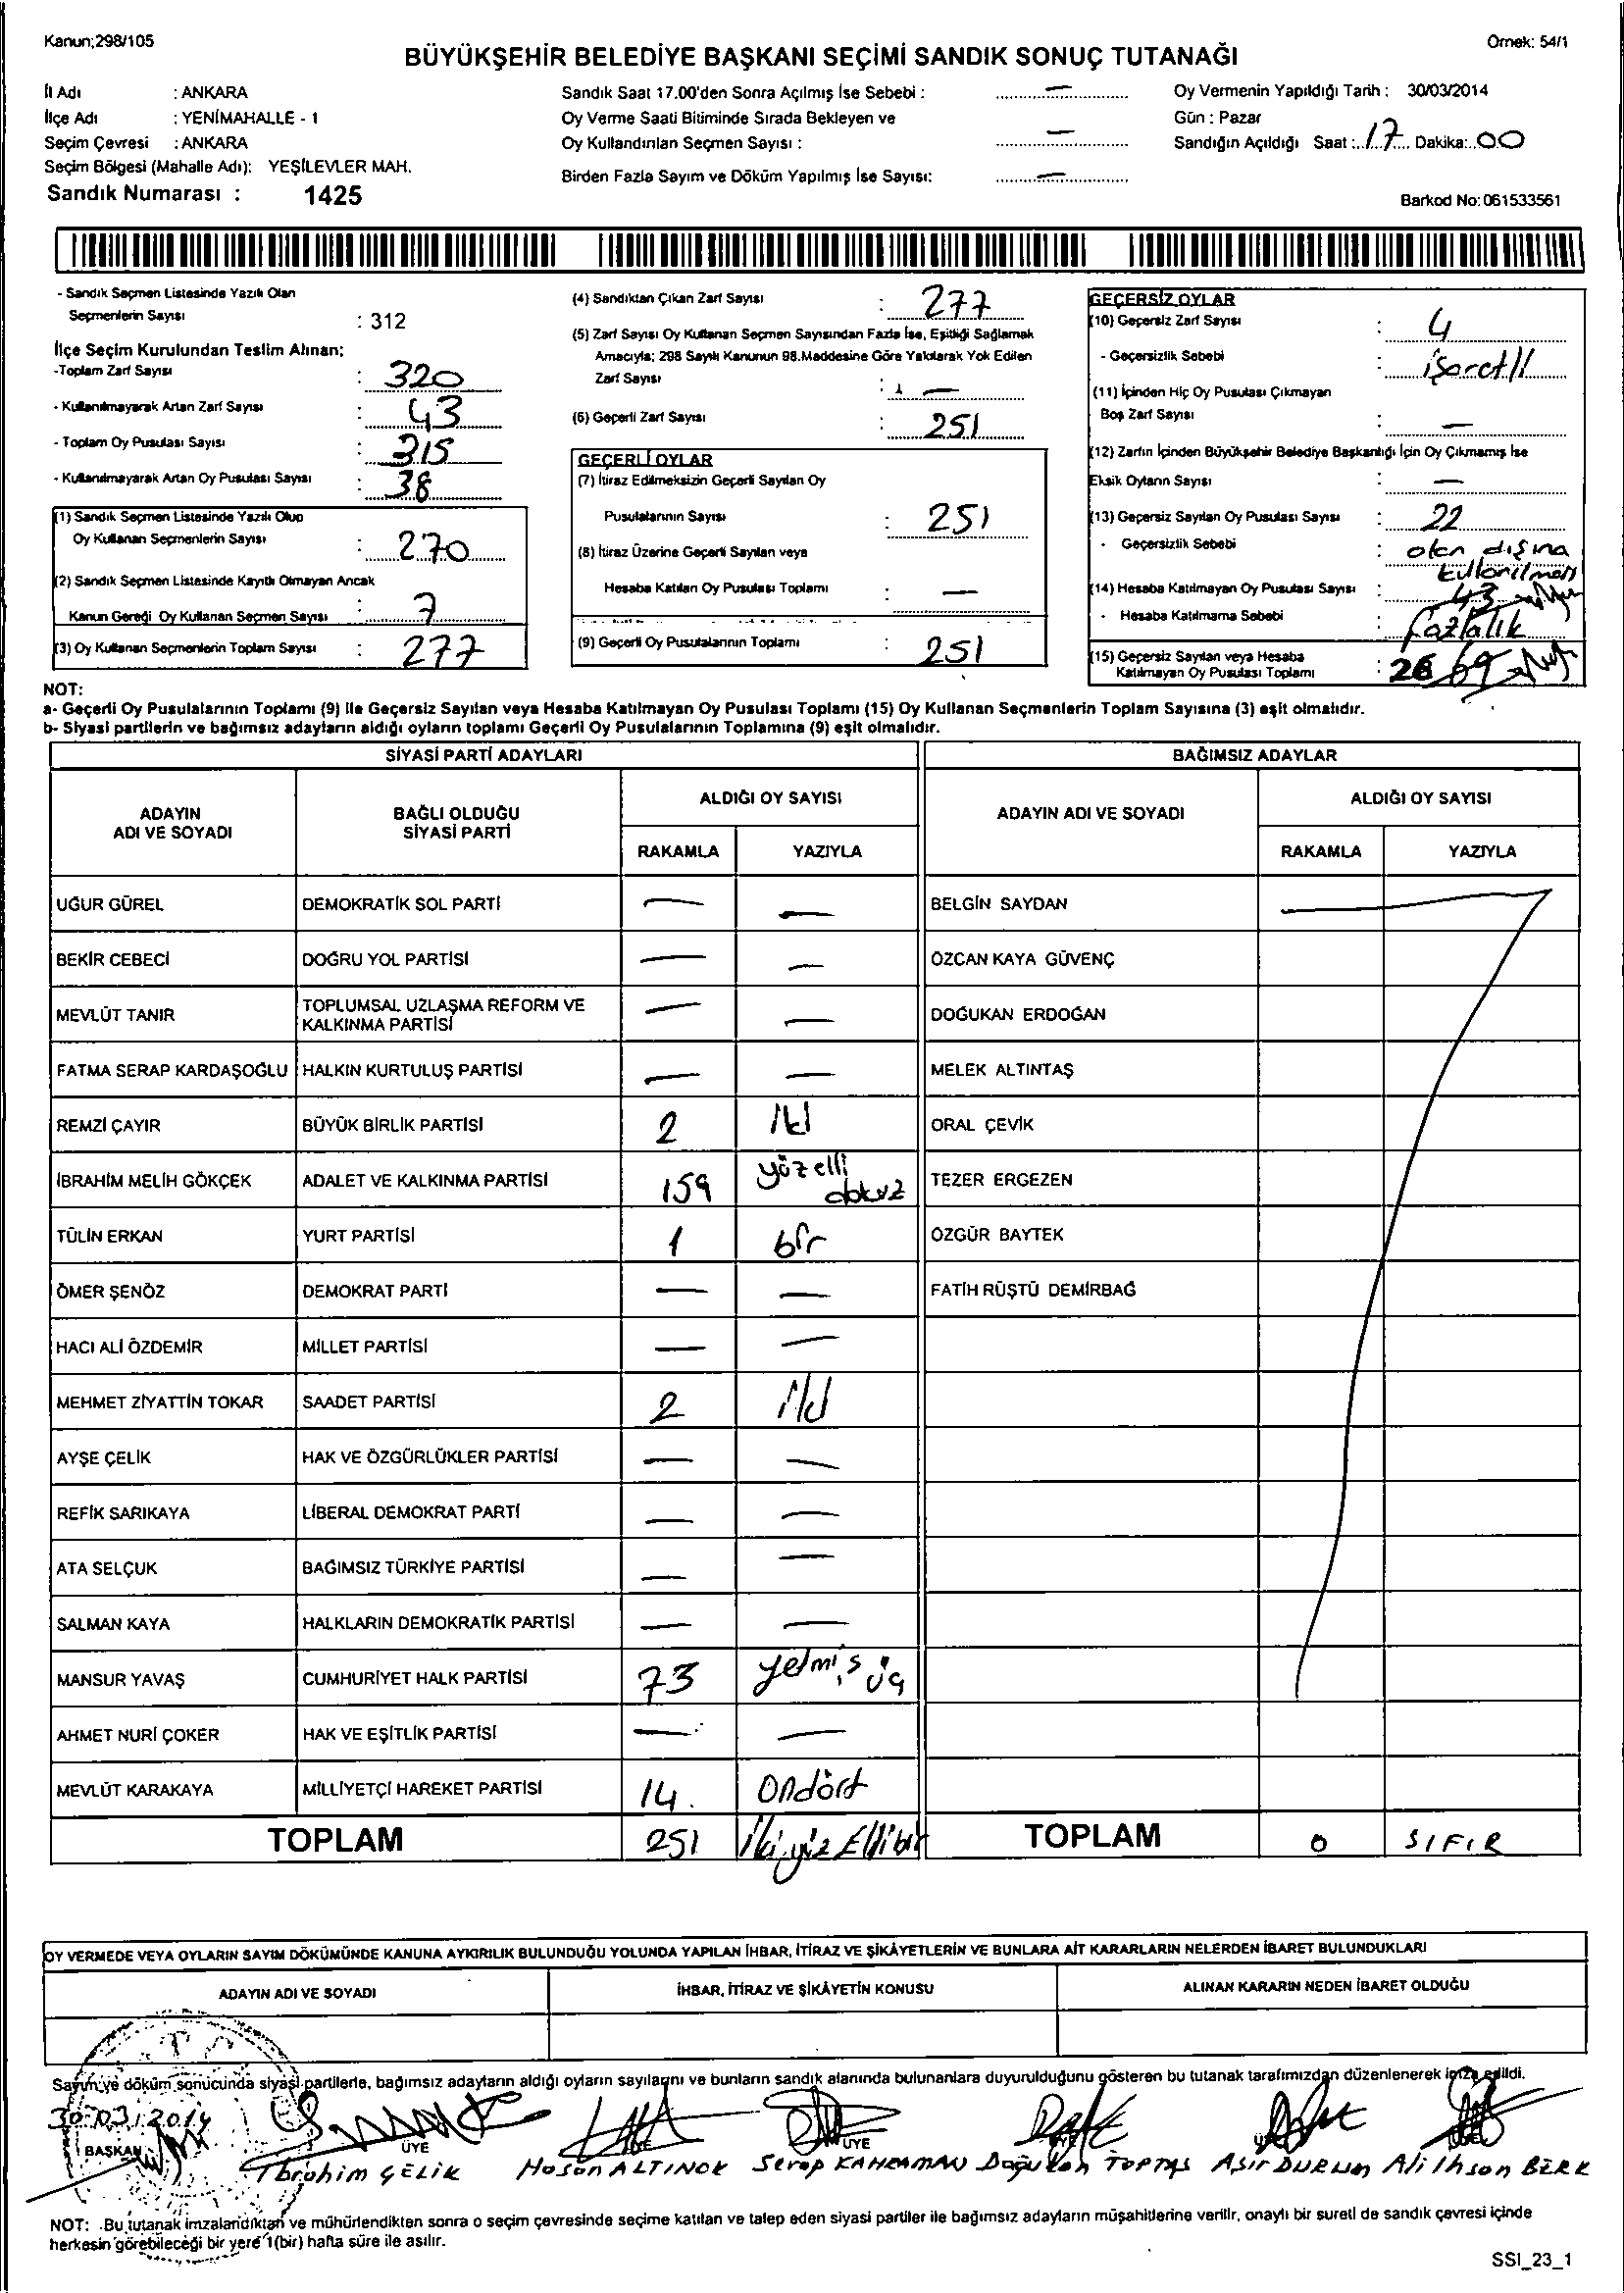 Kanun;298/105
Örnek: 54/1
BÜYÜKŞEHİR BELEDİYE BAŞKANI SEÇİMİ SANDIK SONUÇ TUTANAĞI
İl Adı : ANKARA
İlçe Adı : YENİMAHALLE - 1
Seçim Çevresi : ANKARA
Seçim Bölgesi (Mahalle Adı): YEŞİLEVLER MAH.
Sandık Numarası : 1425
Sandık Saat 17.00'den Sonra Açılmış İse Sebebi : —
Oy Verme Saati Bitiminde Sırada Bekleyen ve
Oy Kullandırılan Seçmen Sayısı : —
Birden Fazla Sayım ve Döküm Yapılmış İse Sayısı: —
Oy Vermenin Yapıldığı Tarih : 30/03/2014
Gün : Pazar
Sandığın Açıldığı Saat : 17 Dakika: 00
Barkod No: 061533561
- Sandık Seçmen Listesinde Yazılı Olan
Seçmenlerin Sayısı : 312
İlçe Seçim Kurulundan Teslim Alınan;
-Toplam Zarf Sayısı : 320
- Kullanılmayarak Artan Zarf Sayısı : 43
- Toplam Oy Pusulası Sayısı : 315
- Kullanılmayarak Artan Oy Pusulası Sayısı : 38
(1) Sandık Seçmen Listesinde Yazılı Olup
Oy Kullanan Seçmenlerin Sayısı : 270
(2) Sandık Seçmen Listesinde Kayıtlı Olmayan Ancak
Kanun Gereği Oy Kullanan Seçmen Sayısı : 7
(3) Oy Kullanan Seçmenlerin Toplam Sayısı : 277
(4) Sandıktan Çıkan Zarf Sayısı : 277
(5) Zarf Sayısı Oy Kullanan Seçmen Sayısından Fazla İse, Eşitliği Sağlamak
Amacıyla; 298 Sayılı Kanunun 98.Maddesine Göre Yakılarak Yok Edilen
Zarf Sayısı : —
(6) Geçerli Zarf Sayısı : 251
GEÇERLİ OYLAR
(7) İtiraz Edilmeksizin Geçerli Sayılan Oy
Pusulalarının Sayısı : 251
(8) İtiraz Üzerine Geçerli Sayılan veya
Hesaba Katılan Oy Pusulası Toplamı : —
(9) Geçerli Oy Pusulalarının Toplamı : 251
GEÇERSİZ OYLAR
(10) Geçersiz Zarf Sayısı : 4
- Geçersizlik Sebebi : işaretli
(11) İçinden Hiç Oy Pusulası Çıkmayan
Boş Zarf Sayısı : —
(12) Zarfın İçinden Büyükşehir Belediye Başkanlığı İçin Oy Çıkmamış İse
Eksik Oyların Sayısı : —
(13) Geçersiz Sayılan Oy Pusulası Sayısı : 22
- Geçersizlik Sebebi : alan dışına
kullanılması
(14) Hesaba Katılmayan Oy Pusulası Sayısı : 43
- Hesaba Katılmama Sebebi : fazlalık
(15) Geçersiz Sayılan veya Hesaba
Katılmayan Oy Pusulası Toplamı : 26 69
NOT:
a- Geçerli Oy Pusulalarının Toplamı (9) ile Geçersiz Sayılan veya Hesaba Katılmayan Oy Pusulası Toplamı (15) Oy Kullanan Seçmenlerin Toplam Sayısına (3) eşit olmalıdır.
b- Siyasi partilerin ve bağımsız adayların aldığı oyların toplamı Geçerli Oy Pusulalarının Toplamına (9) eşit olmalıdır.
SİYASİ PARTİ ADAYLARI
BAĞIMSIZ ADAYLAR
ADAYIN ADI VE SOYADI
BAĞLI OLDUĞU SİYASİ PARTİ
ALDIĞI OY SAYISI
RAKAMLA YAZIYLA
ADAYIN ADI VE SOYADI
ALDIĞI OY SAYISI
RAKAMLA YAZIYLA
UĞUR GÜREL DEMOKRATİK SOL PARTİ — — BELGİN SAYDAN
BEKİR CEBECİ DOĞRU YOL PARTİSİ — — ÖZCAN KAYA GÜVENÇ
MEVLÜT TANIR TOPLUMSAL UZLAŞMA REFORM VE KALKINMA PARTİSİ — — DOĞUKAN ERDOĞAN
FATMA SERAP KARDAŞOĞLU HALKIN KURTULUŞ PARTİSİ — — MELEK ALTINTAŞ
REMZİ ÇAYIR BÜYÜK BİRLİK PARTİSİ 2 iki ORAL ÇEVİK
İBRAHİM MELİH GÖKÇEK ADALET VE KALKINMA PARTİSİ 159 yüzelli dokuz TEZER ERGEZEN
TÜLİN ERKAN YURT PARTİSİ 1 bir ÖZGÜR BAYTEK
ÖMER ŞENÖZ DEMOKRAT PARTİ — — FATİH RÜŞTÜ DEMİRBAĞ
HACI ALİ ÖZDEMİR MİLLET PARTİSİ — —
MEHMET ZİYATTİN TOKAR SAADET PARTİSİ 2 iki
AYŞE ÇELİK HAK VE ÖZGÜRLÜKLER PARTİSİ — —
REFİK SARIKAYA LİBERAL DEMOKRAT PARTİ — —
ATA SELÇUK BAĞIMSIZ TÜRKİYE PARTİSİ — —
SALMAN KAYA HALKLARIN DEMOKRATİK PARTİSİ — —
MANSUR YAVAŞ CUMHURİYET HALK PARTİSİ 73 yetmiş üç
AHMET NURİ ÇOKER HAK VE EŞİTLİK PARTİSİ — —
MEVLÜT KARAKAYA MİLLİYETÇİ HAREKET PARTİSİ 14 Ondört
TOPLAM 251 İkiyüz Ellibir TOPLAM 0 SIFIR
OY VERMEDE VEYA OYLARIN SAYIM DÖKÜMÜNDE KANUNA AYKIRILIK BULUNDUĞU YOLUNDA YAPILAN İHBAR, İTİRAZ VE ŞİKÂYETLERİN VE BUNLARA AİT KARARLARIN NELERDEN İBARET BULUNDUKLARI
ADAYIN ADI VE SOYADI İHBAR, İTİRAZ VE ŞİKÂYETİN KONUSU ALINAN KARARIN NEDEN İBARET OLDUĞU
Sayım ve döküm sonucunda siyasi partilerle, bağımsız adayların aldığı oyların sayılarını ve bunların sandık alanında bulunanlara duyurulduğunu gösteren bu tutanak tarafımızdan düzenlenerek imza edildi.
30.03.2014
BAŞKAN ÜYE ÜYE ÜYE ÜYE ÜYE ÜYE
İbrahim ÇELİK Hasan ALTINOK Serap KAHRAMAN Doğukan TOPTAŞ Aşır DURUM Ali İhsan BERK
NOT: Bu tutanak imzalandıktan ve mühürlendikten sonra o seçim çevresinde seçime katılan ve talep eden siyasi partiler ile bağımsız adayların müşahitlerine verilir, onaylı bir sureti de sandık çevresi içinde
herkesin görebileceği bir yere 1(bir) hafta süre ile asılır.
SSI_23_1